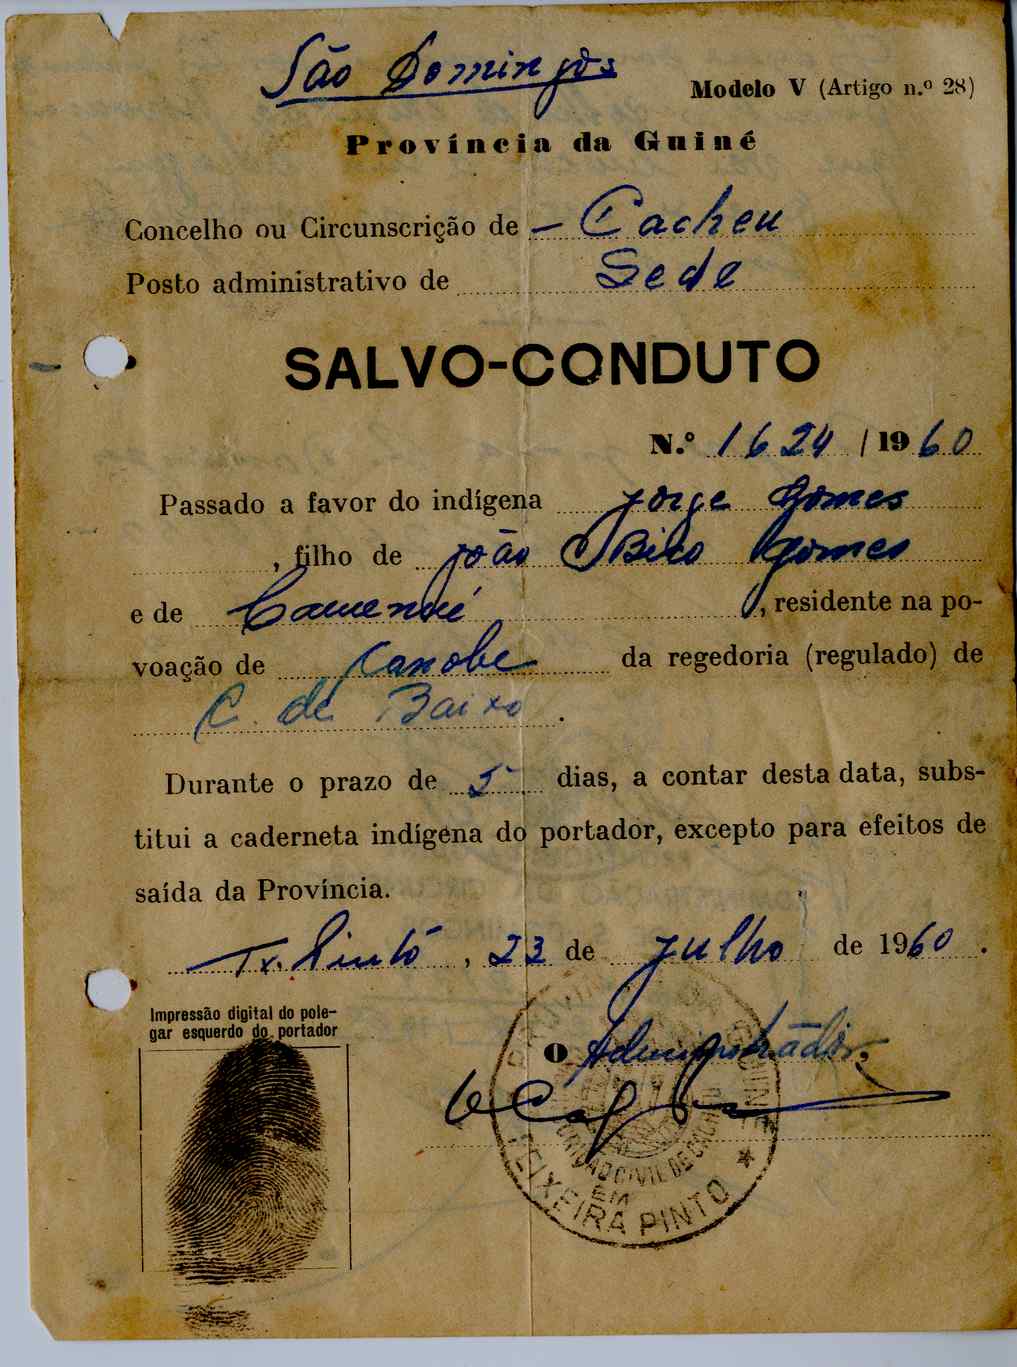 São Domingos
Modelo V (Artigo n.º 28)
Província da Guiné
Concelho ou Circunscrição de - Cacheu
Posto administrativo de Sede
SALVO-CONDUTO
N.º 1624 / 1960
Passado a favor do indígena Jorge Gomes
, filho de João Bico Gomes
e de , residente na po-
voação de Canobe da regedoria (regulado) de
C. de Baixo .
Durante o prazo de 5 dias, a contar desta data, subs-
titui a caderneta indígena do portador, excepto para efeitos de
saída da Província.
Tx. Pinto , 23 de Julho de 1960 .
Impressão digital do pole-
gar esquerdo do portador
O Administrador,
CIVIL DE
EM
TEIXEIRA PINTO